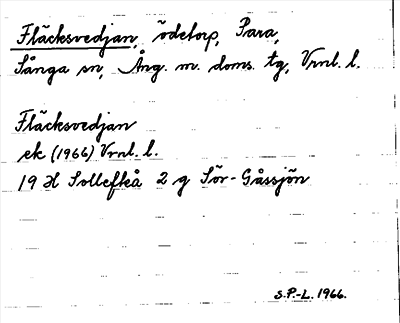 Fläcksvedjan, ödetorp, Para,
Sånga sn, Ång. m. doms. tg, Vrnl. l.
Fläcksvedjan
ek (1966) Vrnl. l.
19 H Sollefteå 2 g Sör-Gåssjön
S.P.-L. 1966.